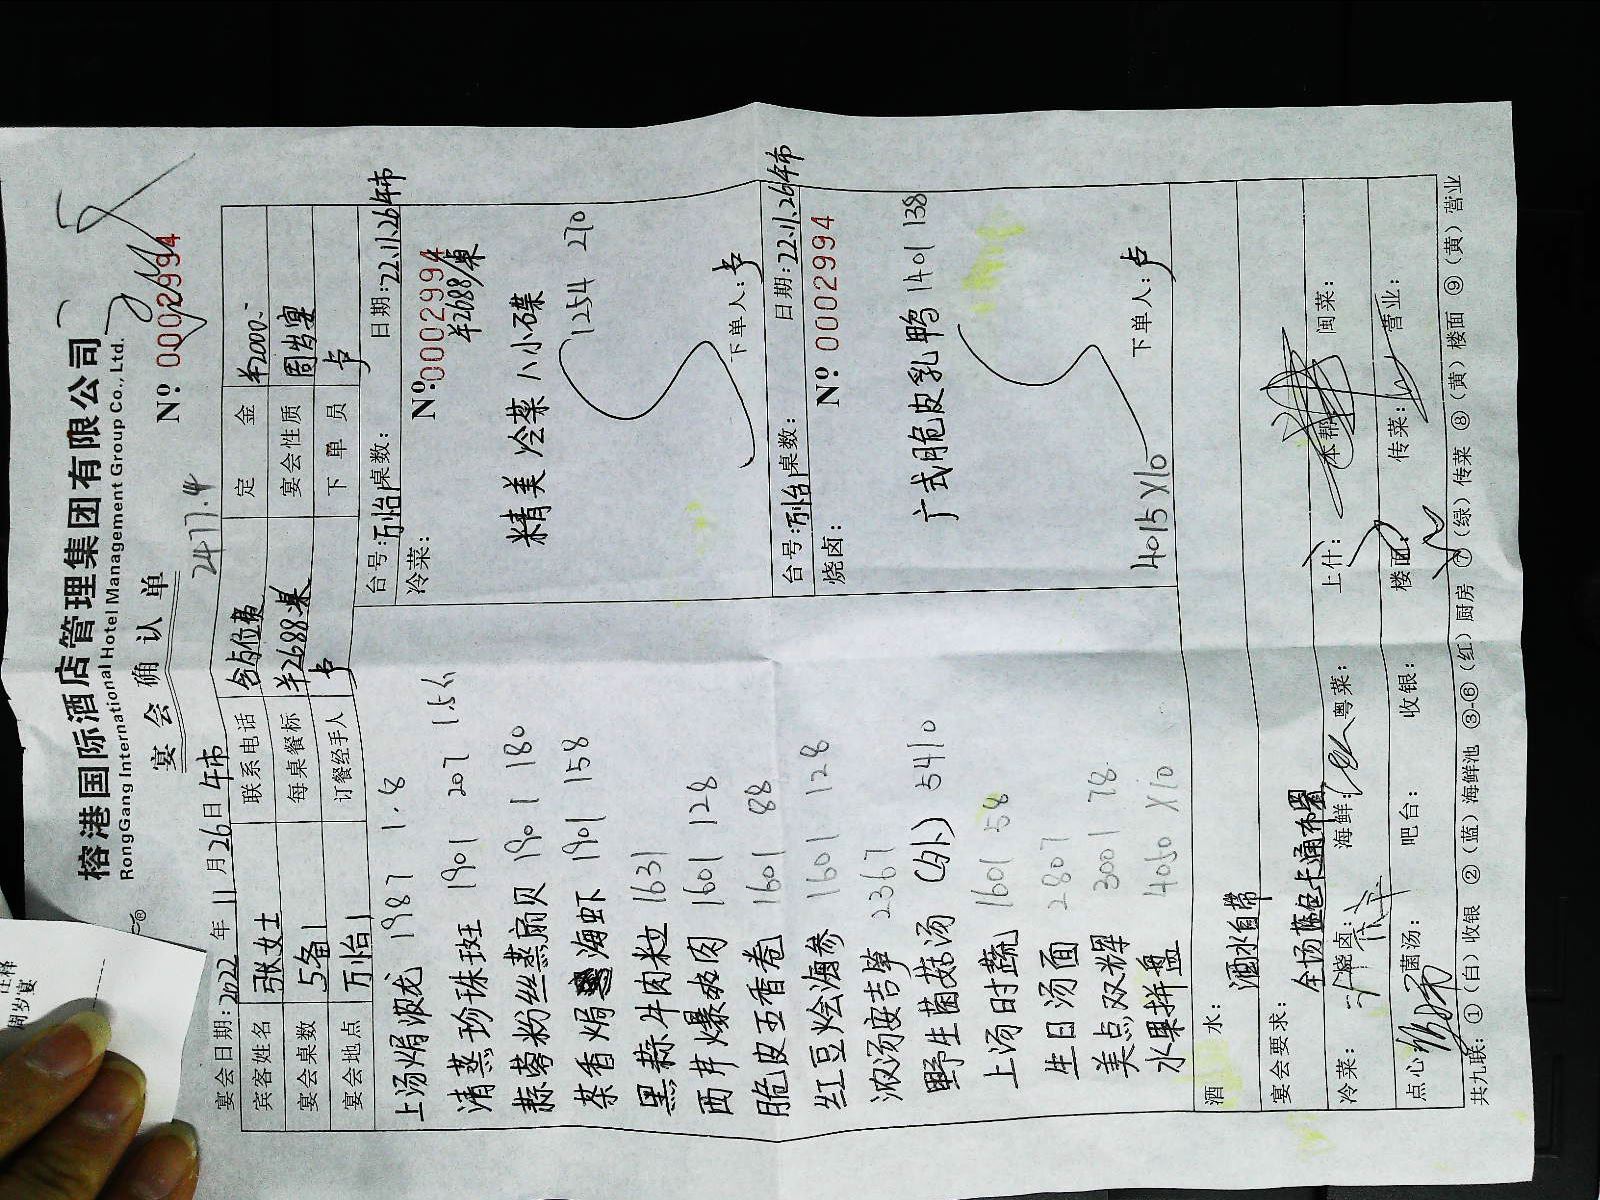 榕港国际酒店管理集团有限公司
RongGang International Hotel Management Group Co., Ltd.
宴会确认单
№ 0002994
2477.4
宴会日期:2022年11月26日午市
宾客姓名 张女士 联系电话 含占位费 定金 ¥2000.-
宴会桌数 5备1 每桌餐标 ¥2688/桌 宴会性质 周岁宴
宴会地点 万怡1 订餐经手人 卢 下单员 卢
上汤焗波龙 1987 1.8
清蒸珍珠斑 1901 207 1.5斤
蒜蓉粉丝蒸扇贝 1901 180
茶香焗海虾 1901 158
黑蒜牛肉粒 1631
西芹爆爽肉 1601 128
脆皮五香卷 1601 88
红豆烩海参 1601 128
浓汤安吉笋 2367
野生菌菇汤(外) 5410
上汤时蔬 1601 58
生日汤面 2807
美点双辉 3001 78
水果拼盘 4050 X10
台号:万怡1 桌数: 日期:22.11.26午市
冷菜: № 0002994
¥2688/桌
精美冷菜八小碟
1254 270
下单人:卢
台号:万怡1 桌数: 日期:22.11.26午市
烧卤: № 0002994
广式脆皮乳鸭 1401 138
4015 X10 下单人:卢
酒水: 酒水自带
宴会要求: 全场蓝色卡通布置
冷菜: 烧卤: 海鲜: 粤菜: 上什: 本帮: 闽菜:
点心: 菌汤: 吧台: 收银: 楼面: 传菜: 营业:
共九联:①(白)收银 ②(蓝)海鲜池 ③-⑥(红)厨房 ⑦(绿)传菜 ⑧(黄)楼面 ⑨(黄)营业
周岁宴